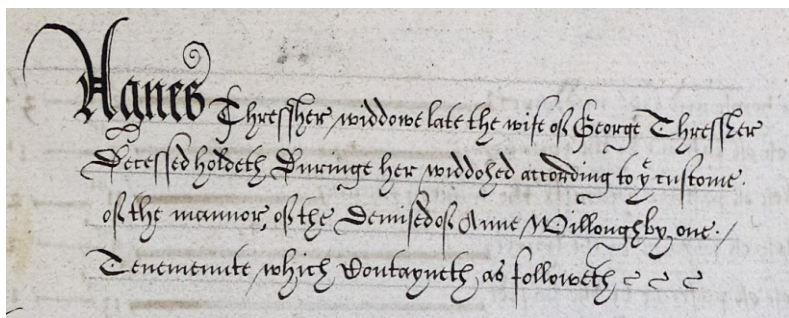 Agnes Thressher widdowe late the wife of George Thressher
Decessed holdeth Duringe her widdohed according to yͤ custome.
of the mannor, of the Demised of Anne Willoughby, one. /
Tenemennte which Contayneth as followeth